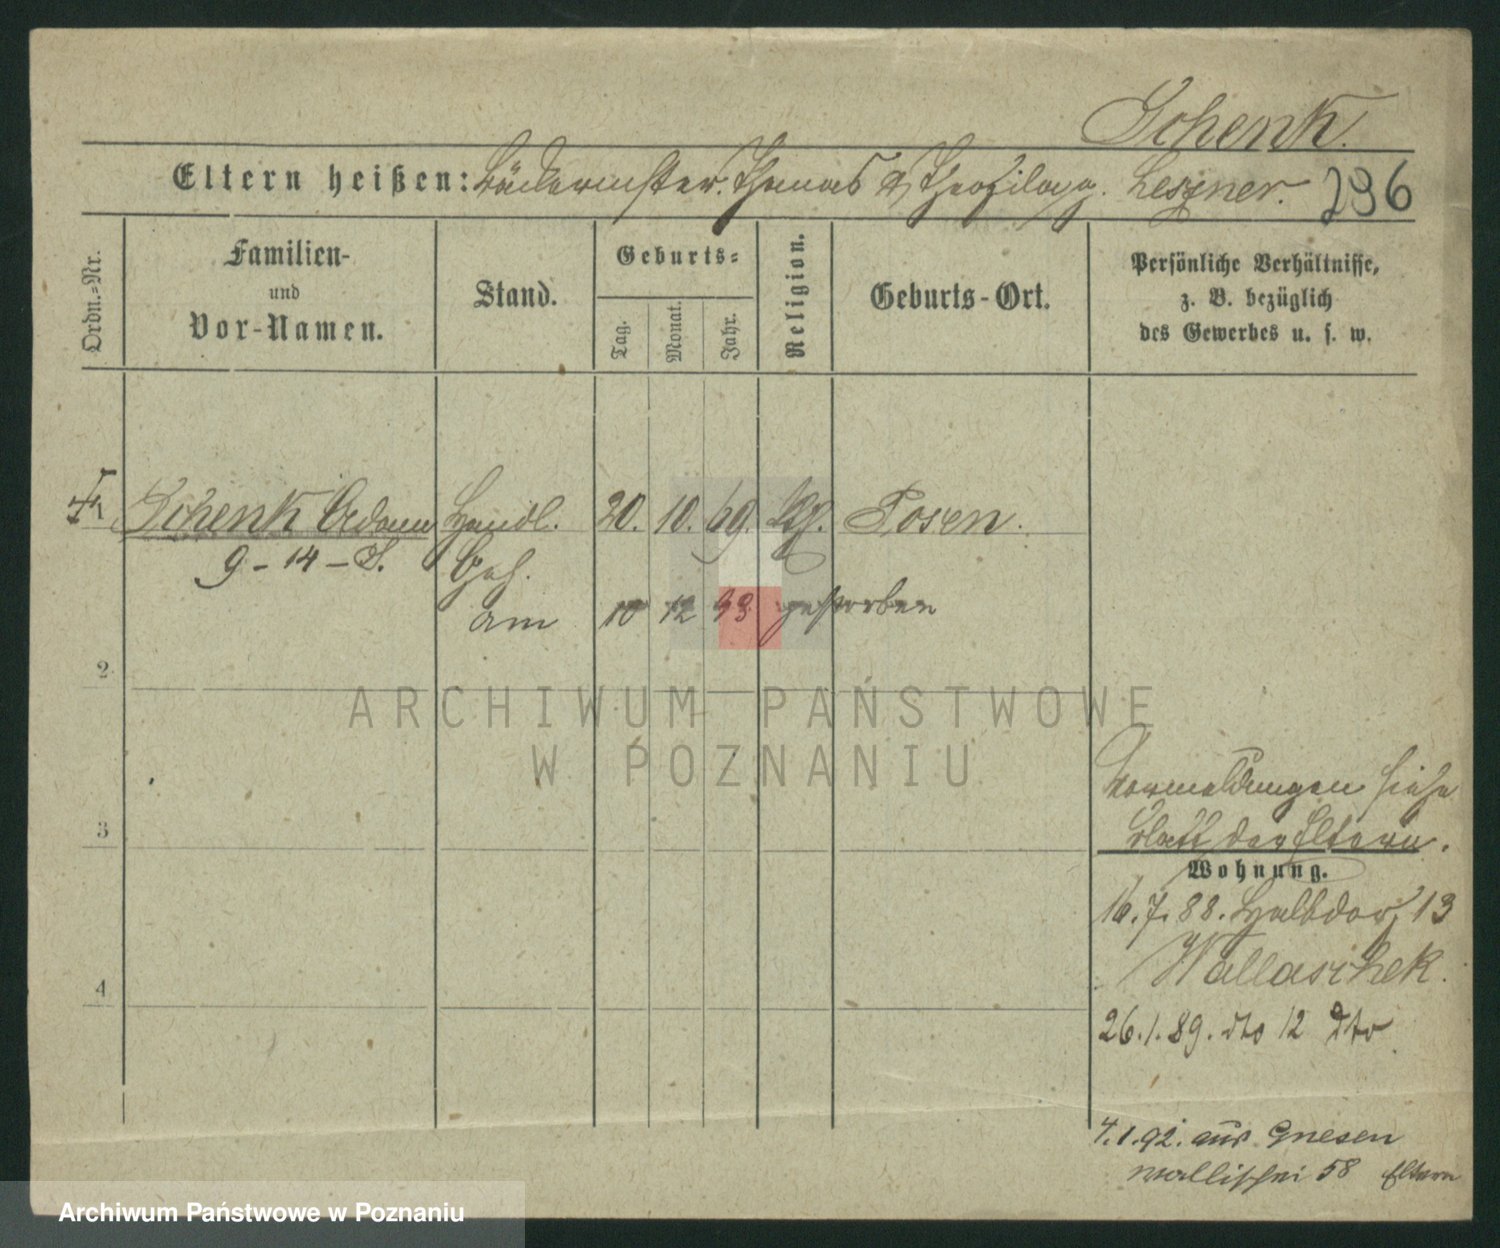 Schenk.
Eltern heißen: Bäckermster. Thomas & Theofila g. Leszner. 296
Ordn.=Nr.
Familien-
und
Vor-Namen.
Stand.
Geburts=
Tag.
Monat.
Jahr.
Religion.
Geburts-Ort.
Persönliche Verhältnisse,
z. B. bezüglich
des Gewerbes u. s. w.
1 Schenk Adam Handl. 20. 10. 69. Posen.
9-14-S. Geh.
am 10 12 93 gestorben
2
ARCHIWUM PAŃSTWOWE
W POZNANIU
Vormeldungen siehe
3
Blatt der Eltern.
Wohnung.
16.7.88. Halbdorf 13
Wallaschek.
4
26.1.89. dto 12 dto
4.1.92. aus Gnesen
Wallischei 58 Eltern
Archiwum Państwowe w Poznaniu